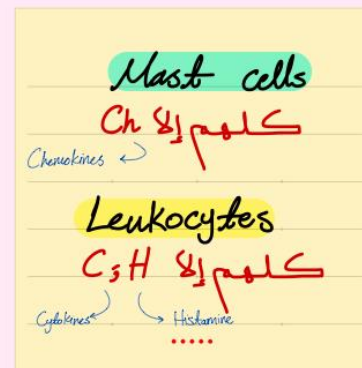 Mast cells
كلهم إلا Ch
Chemokines
Leukocytes
كلهم إلا H و C
Cytokines Histamine